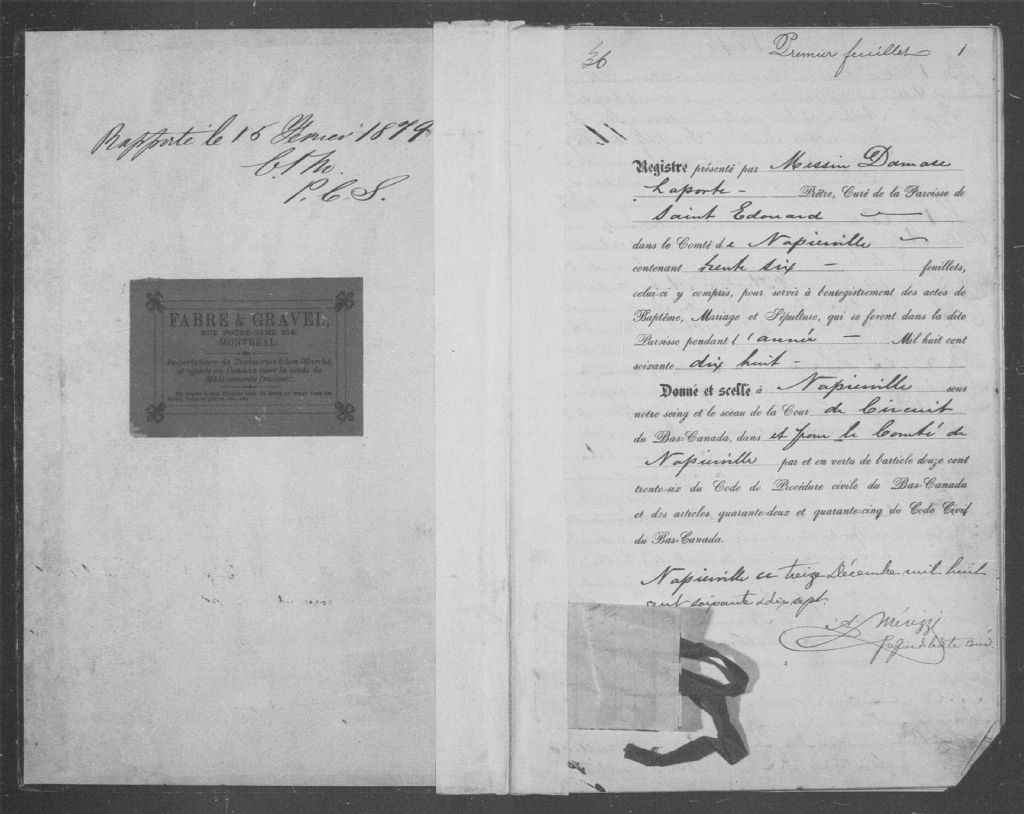 Rapporté le 15 Février 1879
P.C.S.
FABRE & GRAVEL,
RUE NOTRE-DAME 219,
MONTREAL.
Importateurs de Tapisseries à bon Marché,
et agents au Canada pour la vente de
Médicaments français.
36
Premier feuillet 1
Registre présenté par Messire Damase
Laporte - Prêtre, Curé de la Paroisse de
Saint Edouard —
dans le Comté de Napierville —
contenant trente six — feuillets,
celui-ci y compris, pour servir à l'enregistrement des actes de
Baptême, Mariage et Sépulture, qui se feront dans la dite
Paroisse pendant l'année — Mil huit cent
soixante dix huit -
Donné et scellé à Napierville sous
notre seing et le sceau de la Cour de Circuit
du Bas-Canada, dans et pour le Comté de
Napierville par et en vertu de l'article douze cent
trente-six du Code de Procédure civile du Bas-Canada
et des articles quarante-deux et quarante-cinq du Code Civil
du Bas-Canada.
Napierville ce treize Décembre mil huit
cent soixante & dix sept.
Mérizzi
Greffier de la dite Cour.